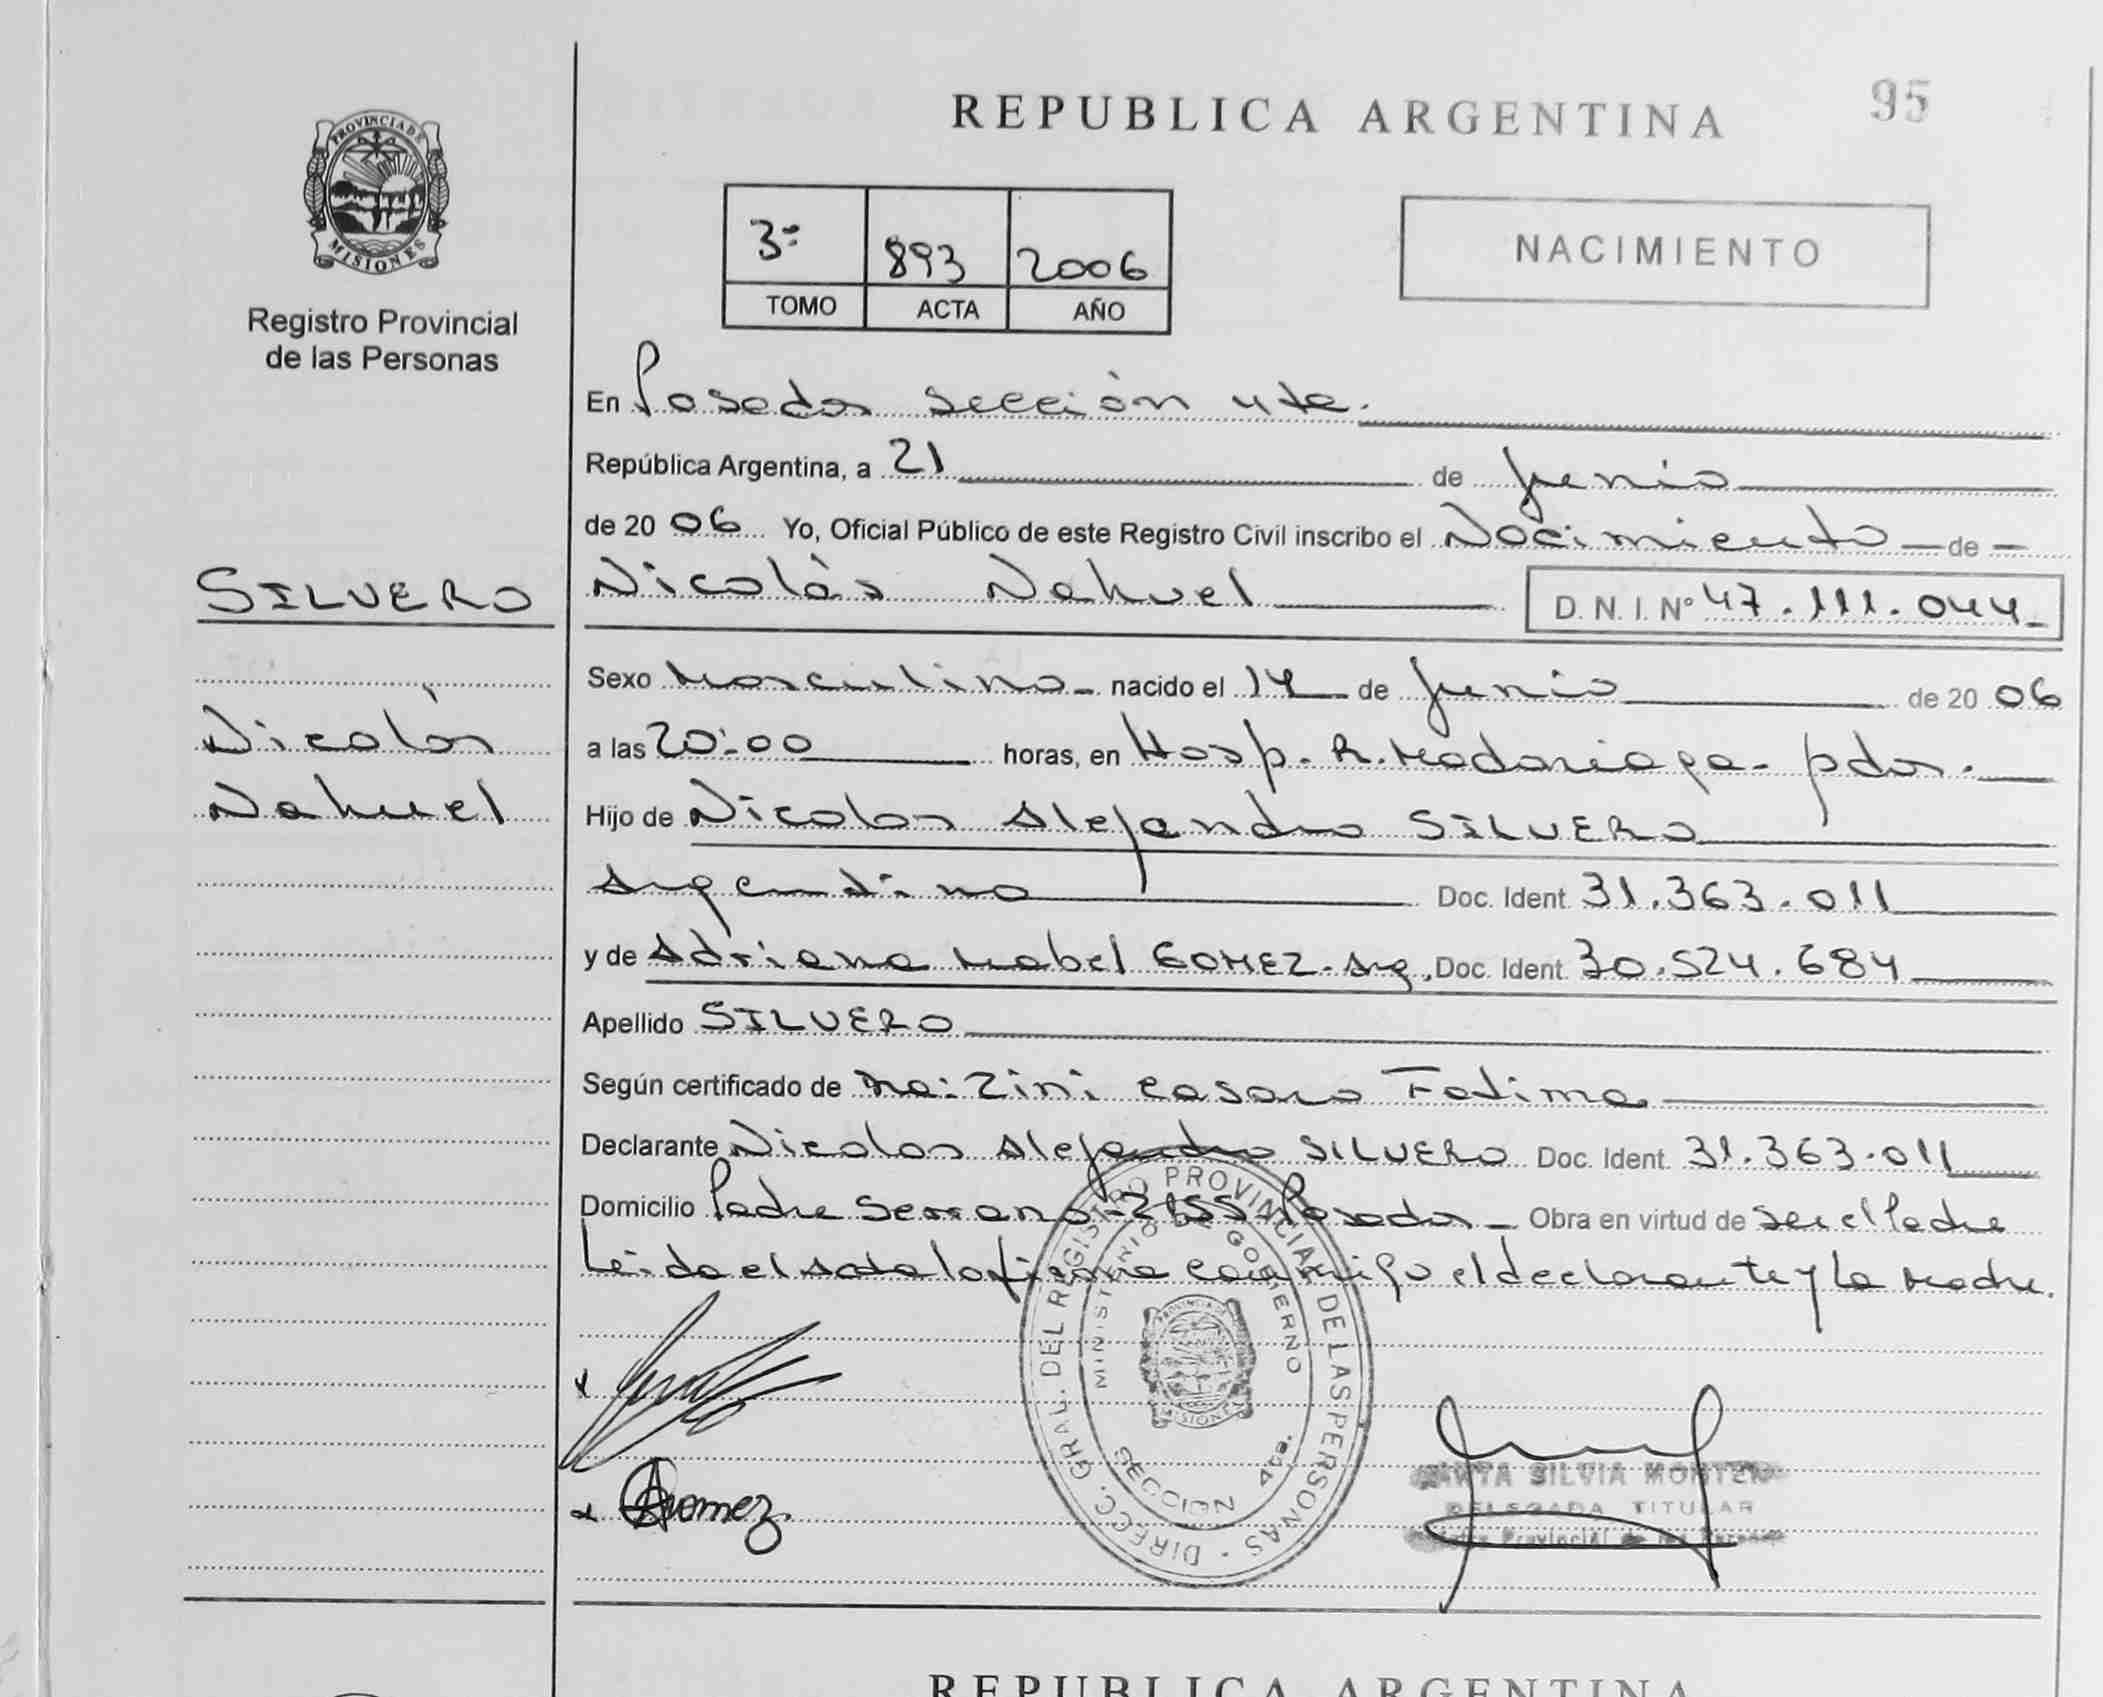 REPUBLICA ARGENTINA
95
PROVINCIA DE
MISIONES
Registro Provincial
de las Personas
3º 893 2006
TOMO ACTA AÑO
NACIMIENTO
En Posadas Sección 4ta.
República Argentina, a 21 de Junio
de 20 06 Yo, Oficial Público de este Registro Civil inscribo el Nacimiento de
SILVERO
Nicolás Nahuel
D. N. I. Nº 47.111.044
Sexo Masculino nacido el 14 de Junio de 20 06
Nicolás
Nahuel
a las 20:00 horas, en Hosp. R. Madariaga - pdas.
Hijo de Nicolas Alejandro SILVERO
Argentino Doc. Ident. 31.363.011
y de Adriana Mabel GOMEZ - Arg. Doc. Ident. 30.524.684
Apellido SILVERO
Según certificado de Ma: Zini Casaro Fatima
Declarante Nicolas Alejandro SILVERO Doc. Ident. 31.363.011
Domicilio Padre Serrano - 2155 Posadas - Obra en virtud de Ser el Padre
Leida el Acta la firma conmigo el declarante y La Madre.
DIRECC. GRAL. DEL REGISTRO PROVINCIAL DE LAS PERSONAS
MINISTERIO DE GOBIERNO
PROVINCIA DE
MISIONES
SECCION 4ta.
x
x AGomez.
SILVIA
DELEGADA TITULAR
Provincial de las
REPUBLICA ARGENTINA